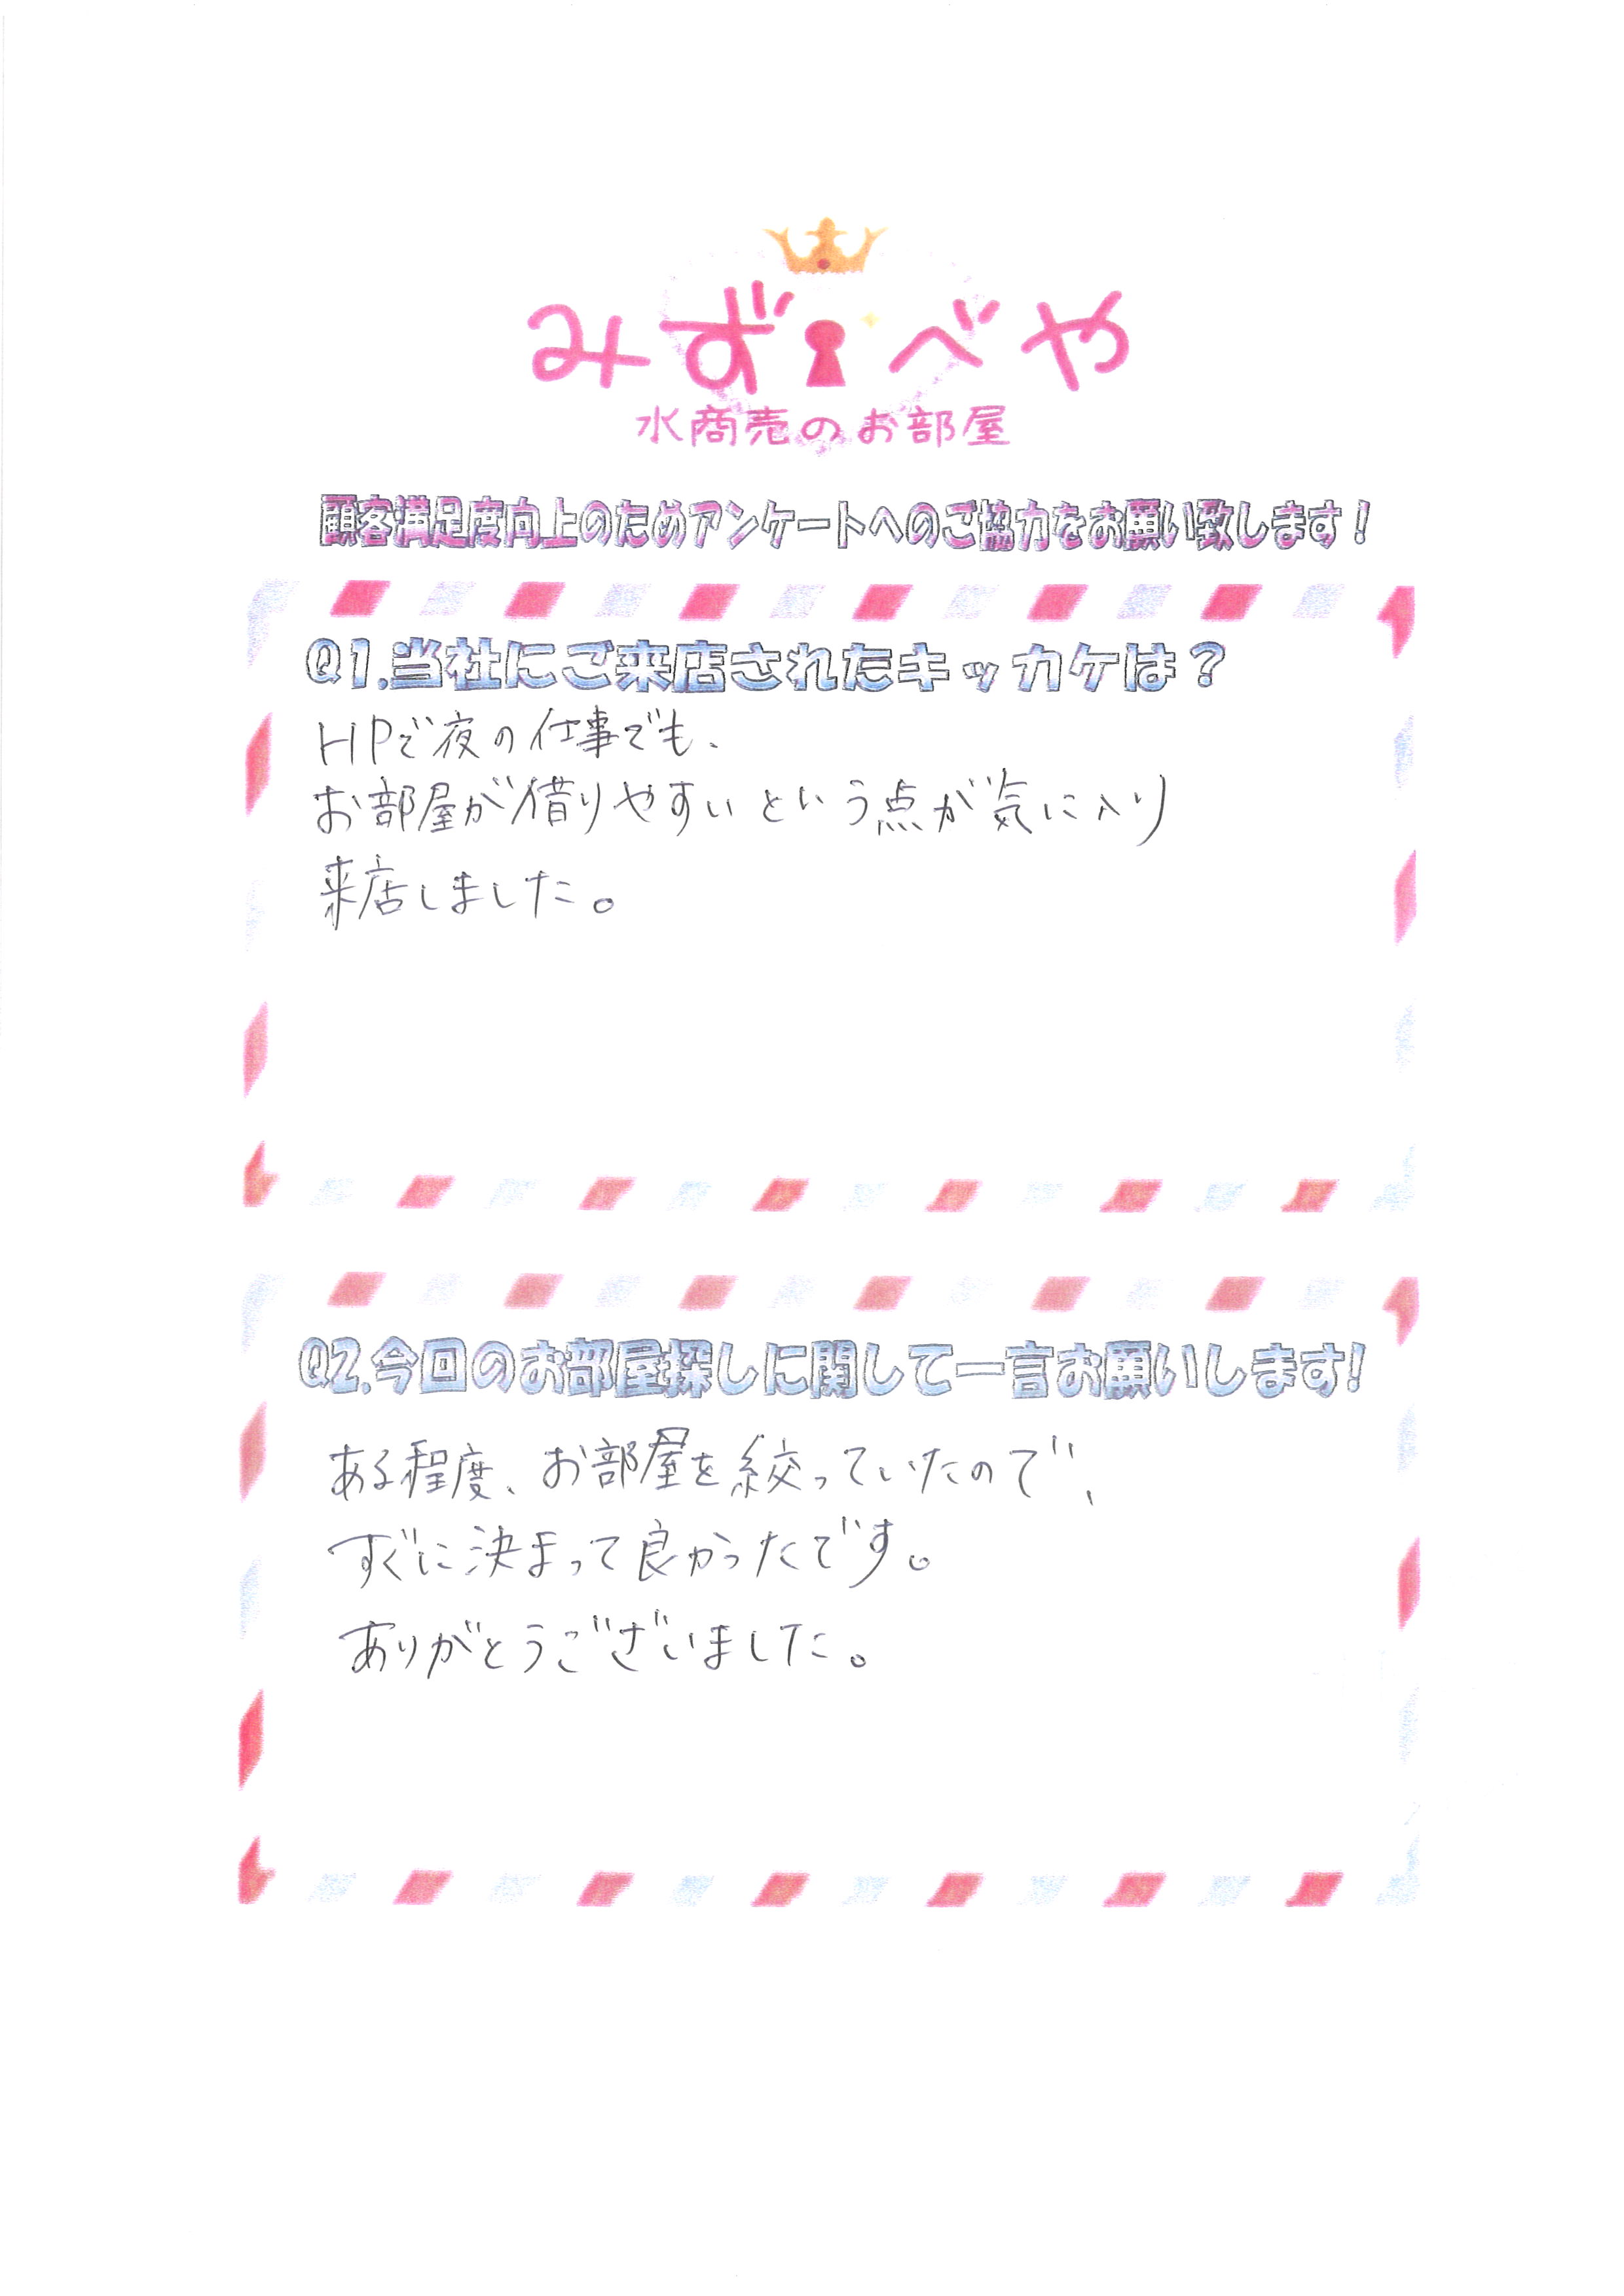 みずべや
水商売のお部屋
顧客満足度向上のためアンケートへのご協力をお願い致します！
Q1.当社にご来店されたキッカケは？
HPで夜の仕事でも、
お部屋が借りやすいという点が気に入り
来店しました。
Q2.今回のお部屋探しに関して一言お願いします!
ある程度、お部屋を絞っていたので、
すぐに決まって良かったです。
ありがとうございました。